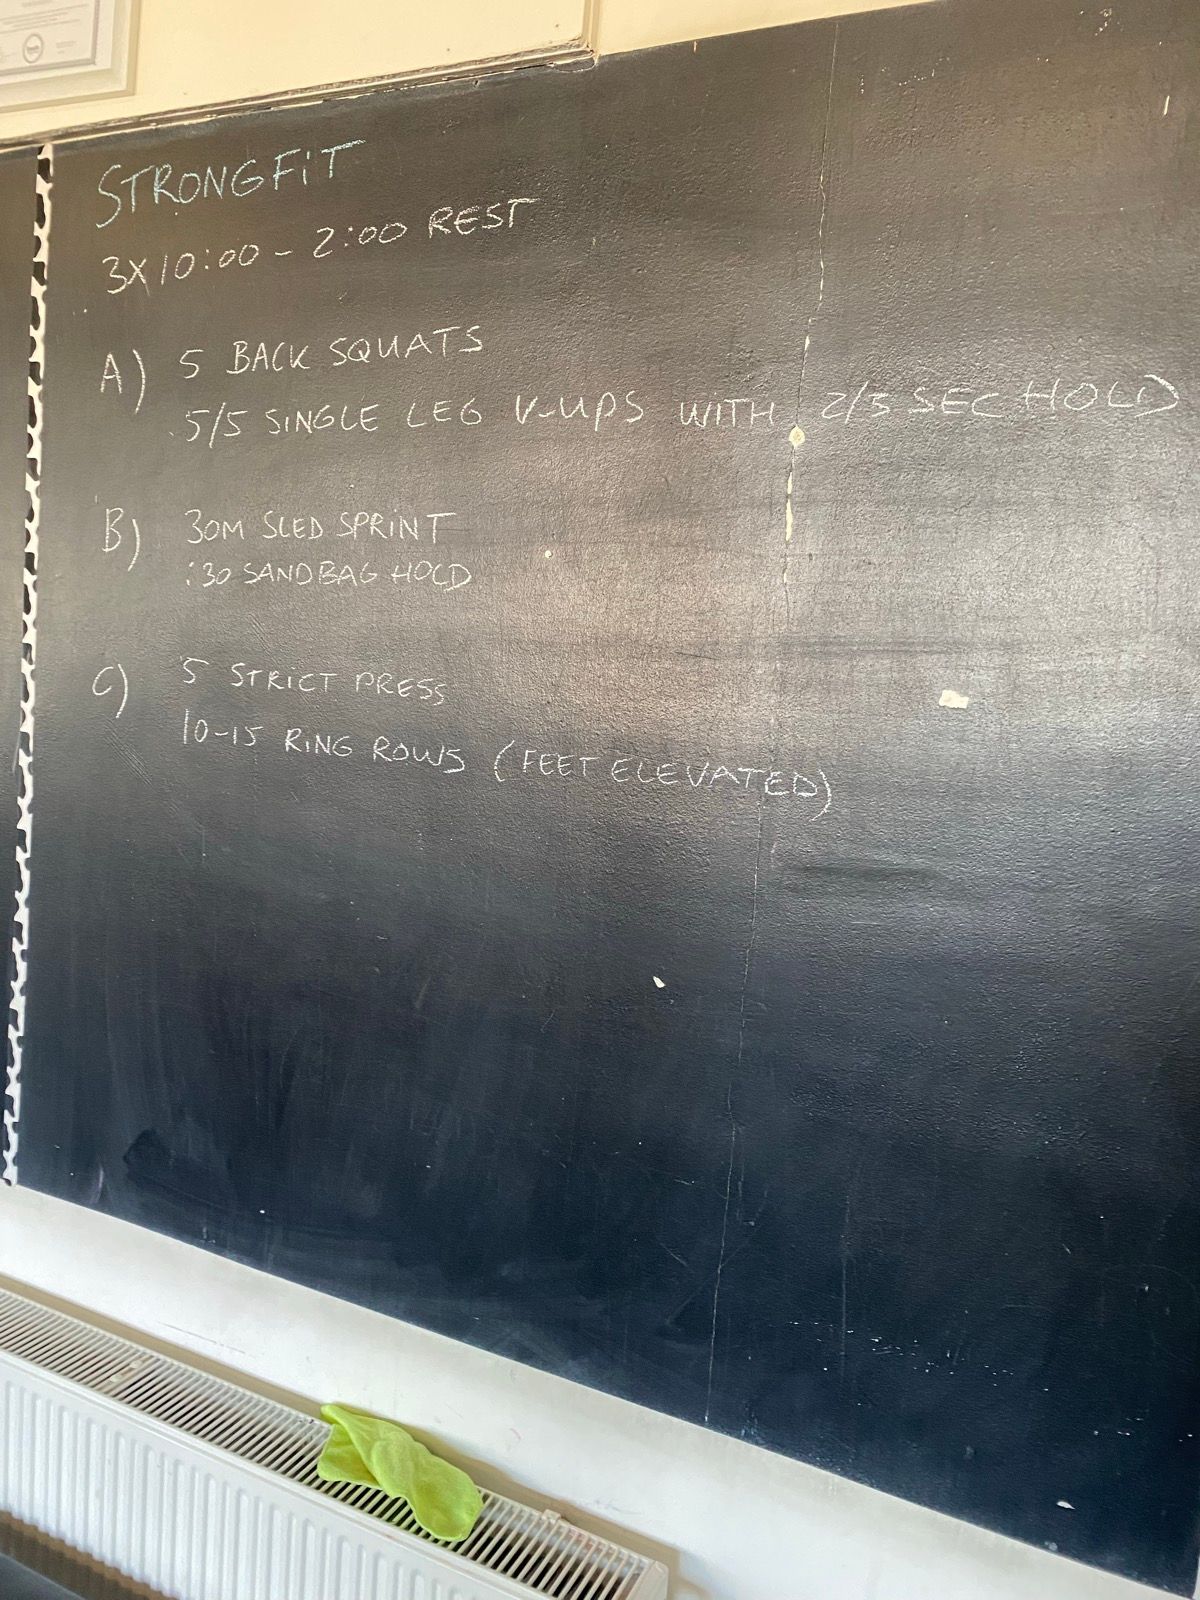 STRONGFIT
3X10:00 - 2:00 REST
A) 5 BACK SQUATS
5/5 SINGLE LEG V-UPS WITH 2/3 SEC HOLD
B) 30M SLED SPRINT
:30 SANDBAG HOLD
C) 5 STRICT PRESS
10-15 RING ROWS (FEET ELEVATED)